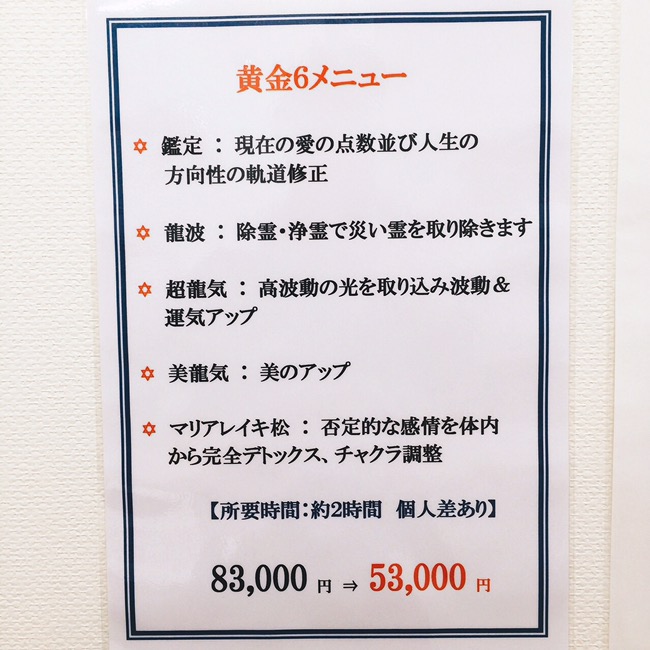 黄金6メニュー
✡ 鑑定 : 現在の愛の点数並び人生の
方向性の軌道修正
✡ 龍波 : 除霊・浄霊で災い霊を取り除きます
✡ 超龍気 : 高波動の光を取り込み波動&
運気アップ
✡ 美龍気 : 美のアップ
✡ マリアレイキ松 : 否定的な感情を体内
から完全デトックス、チャクラ調整
【所要時間:約2時間 個人差あり】
83,000 円 ⇒ 53,000 円